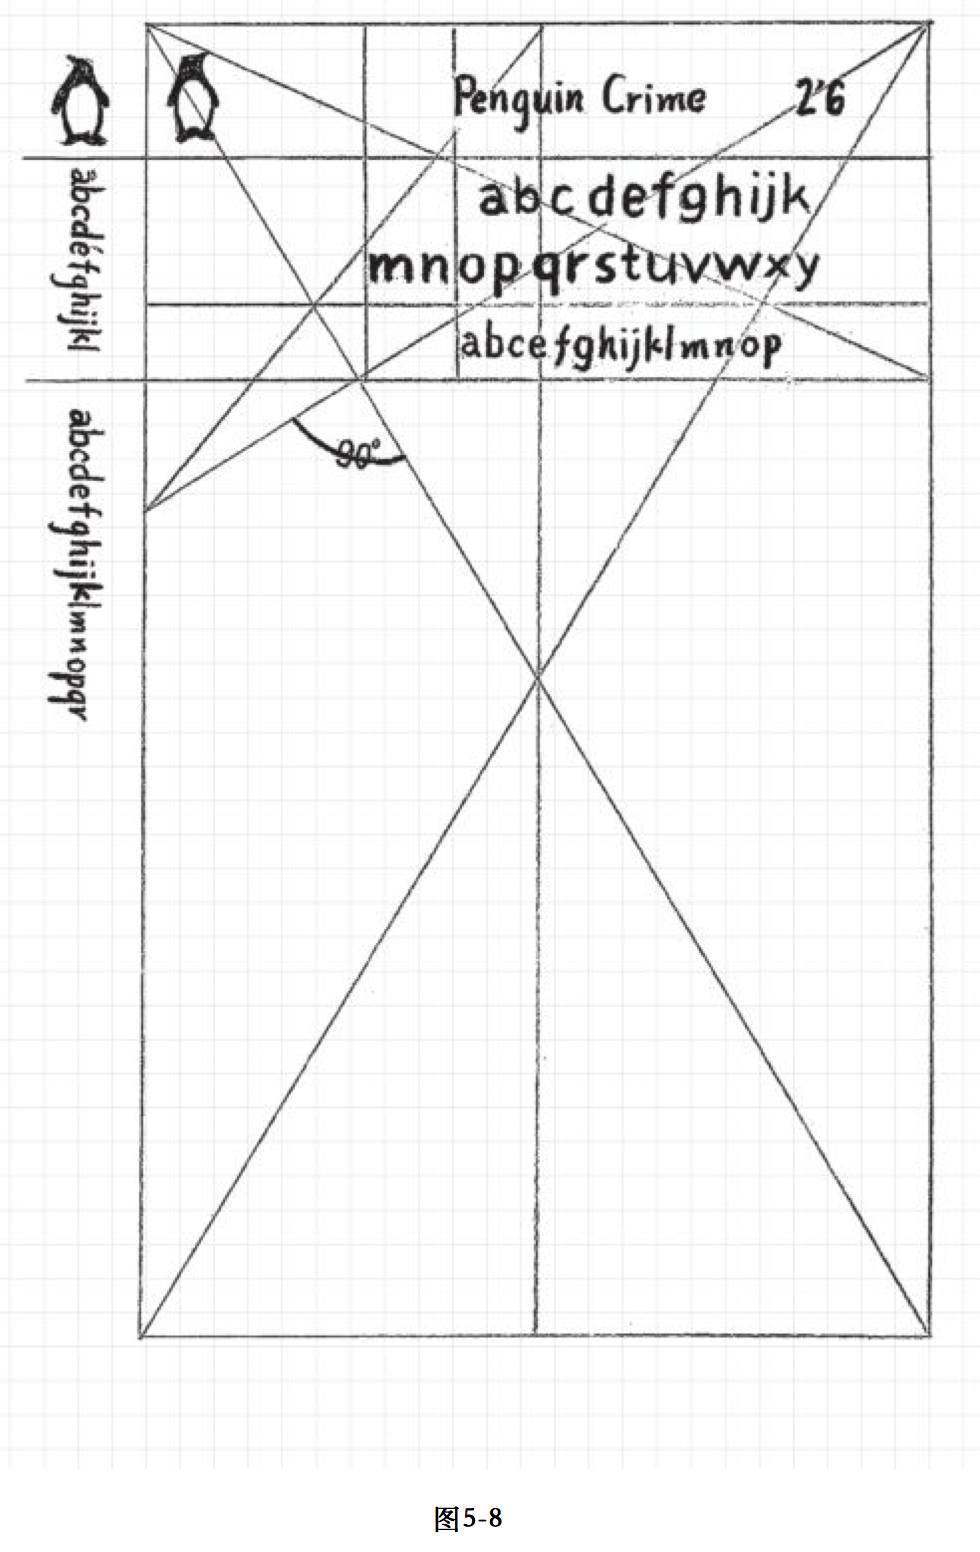 Penguin Crime 2'6
abcdefghijk
mnopqrstuvwxy
abcefghijklmnop
abcdéfghijkl
abcdefghijklmnopqr
90°
图5-8